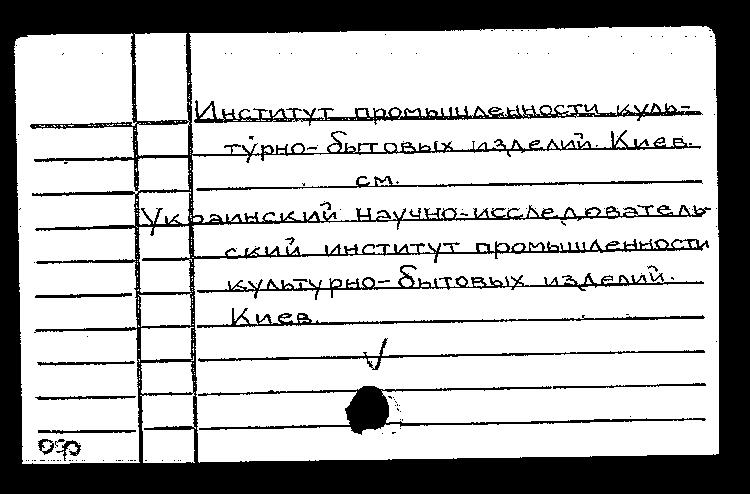 Институт промышленности куль-
турно-бытовых изделий. Киев.
см.
Украинский научно-исследователь-
ский институт промышленности
культурно-бытовых изделий.
Киев.